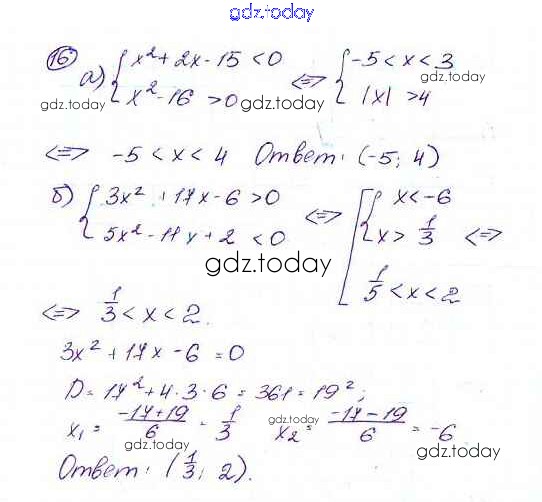 gdz.today
16 а) { x² + 2x - 15 < 0 <=> { -5 < x < 3
{ x² - 16 > 0 { |x| > 4
gdz.today gdz.today gdz.today
<=> -5 < x < 4 Ответ: (-5; 4)
б) { 3x² + 17x - 6 > 0 <=> [ { x < -6
{ 5x² - 11x + 2 < 0 { x > 1/3 <=>
gdz.today
1/5 < x < 2
<=> 1/3 < x < 2.
3x² + 17x - 6 = 0
D = 17² + 4 · 3 · 6 = 361 = 19²;
x₁ = (-17+19)/6 = 1/3 x₂ = (-17-19)/6 = -6
gdz.today gdz.today gdz.today
Ответ: (1/3; 2).